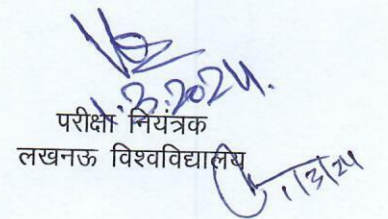 1.3.2024.
परीक्षा नियंत्रक
लखनऊ विश्वविद्यालय
1/3/24